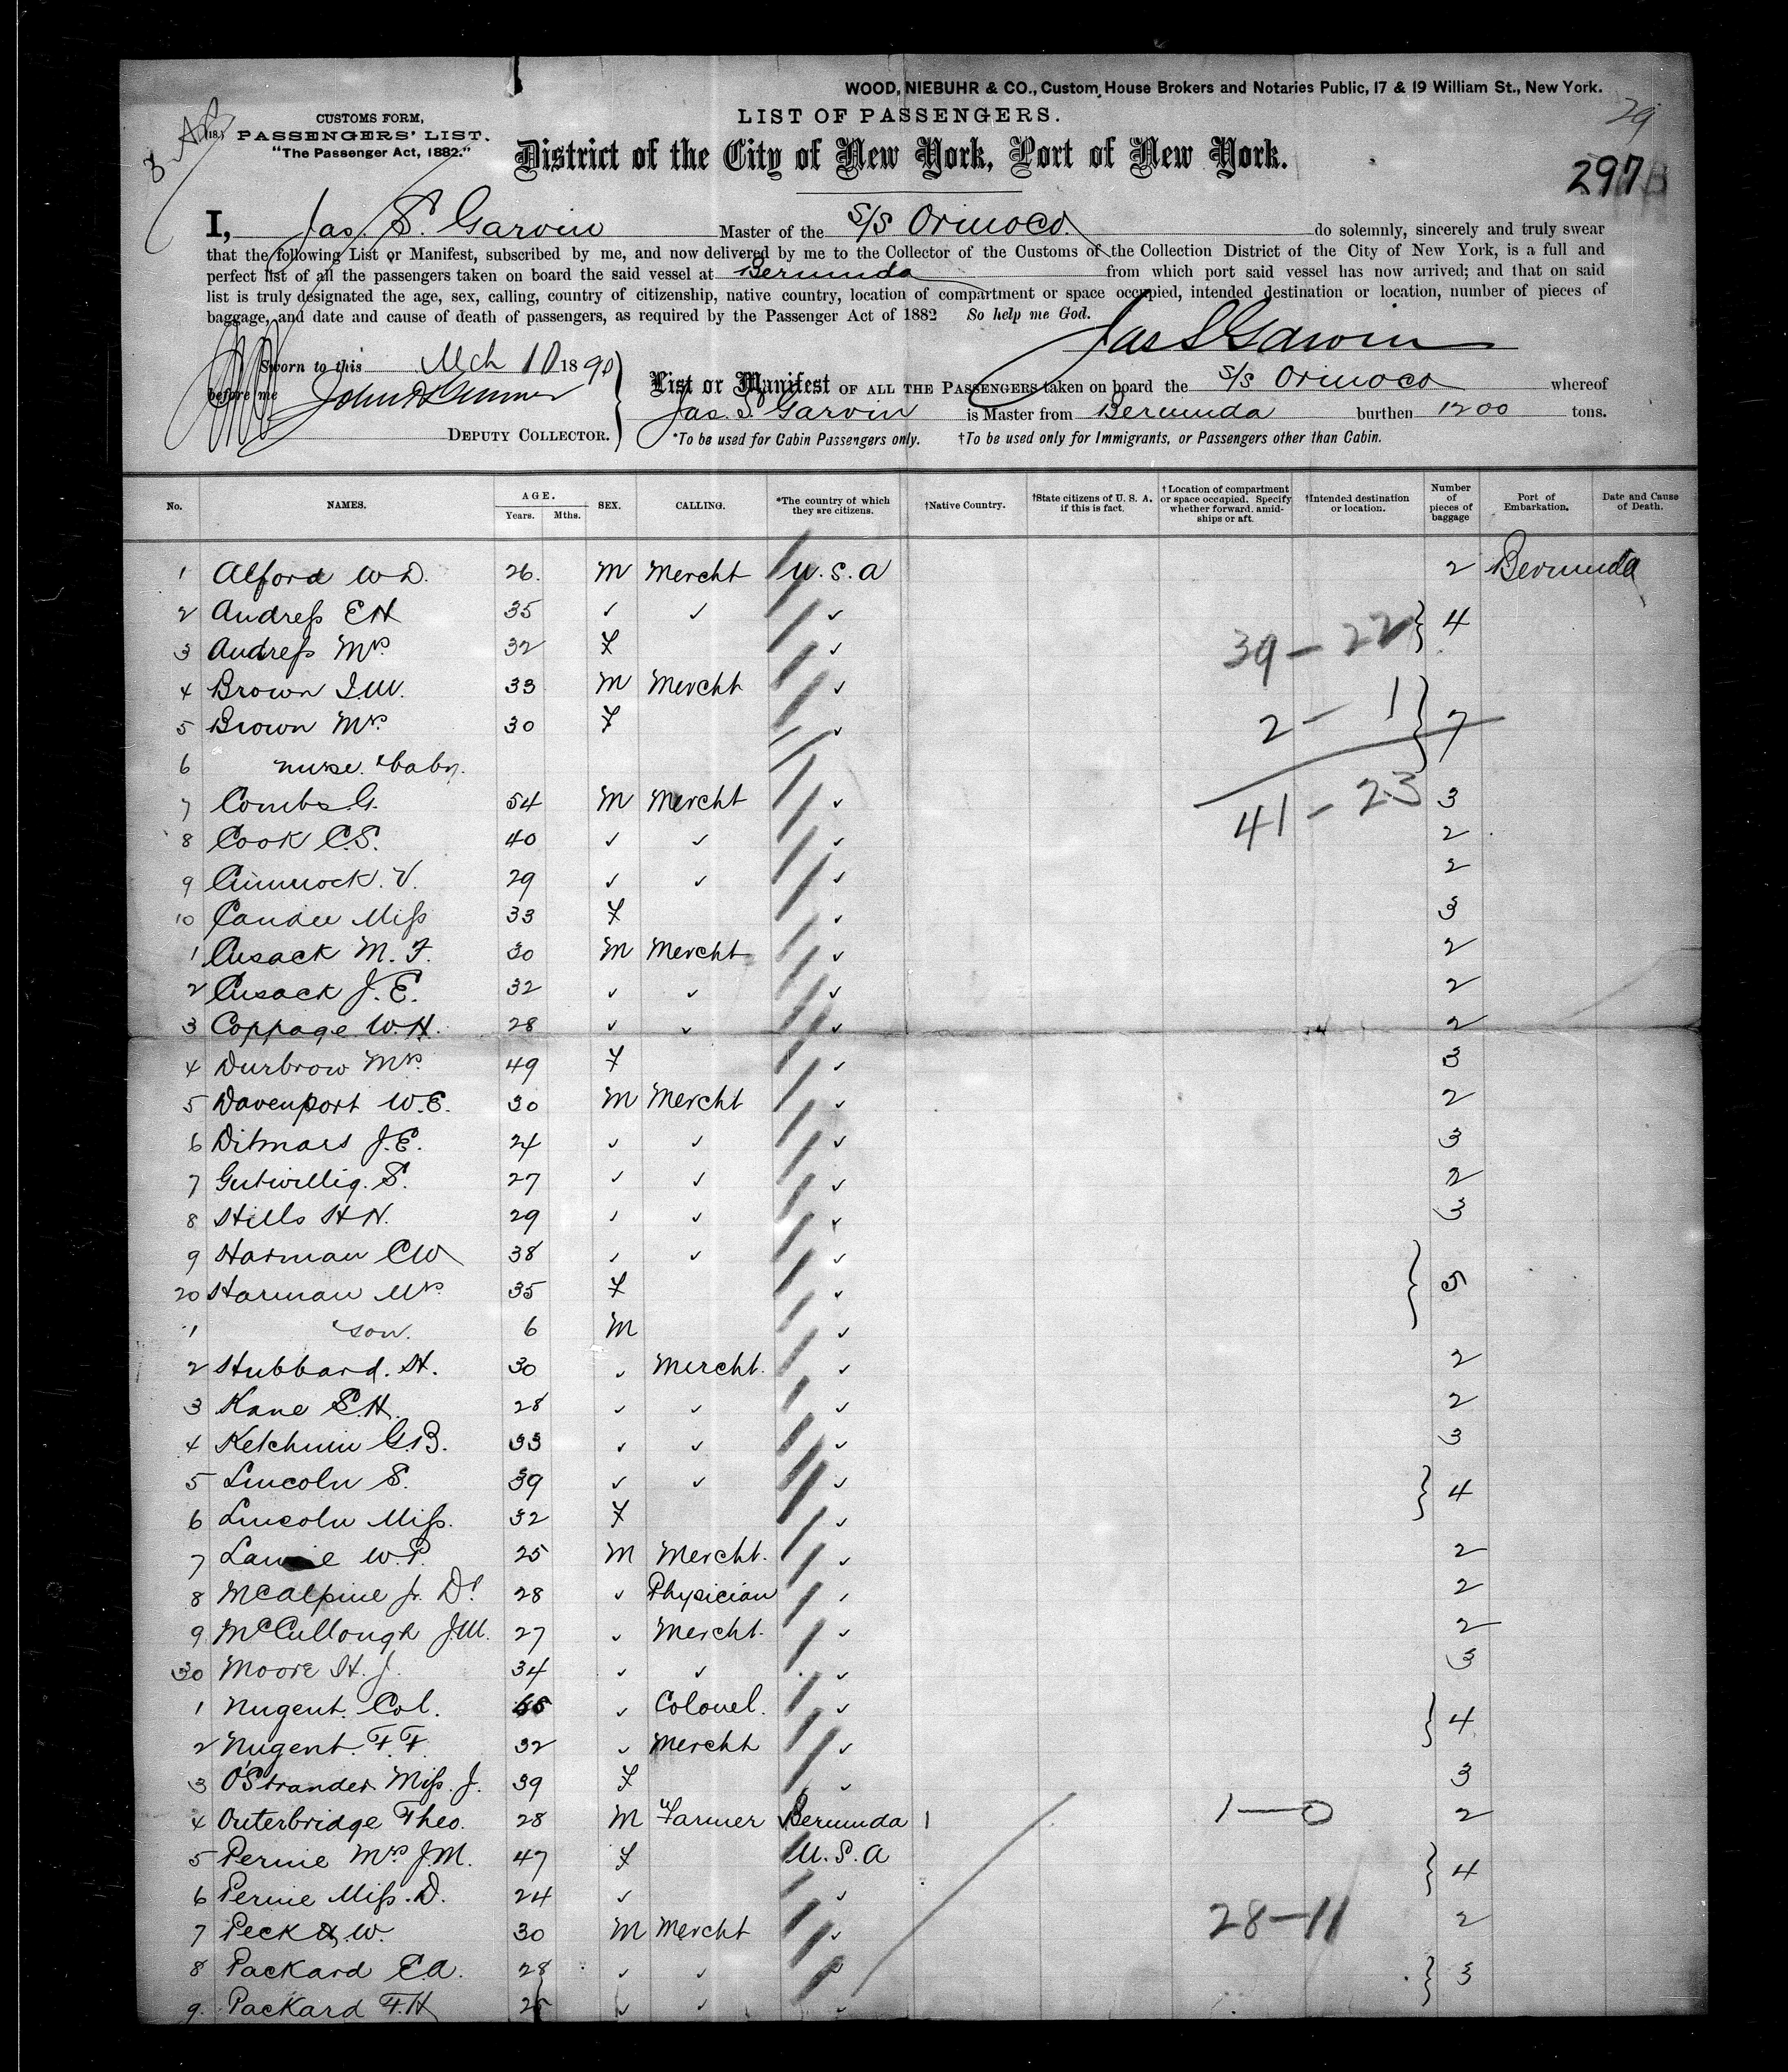 WOOD, NIEBUHR & CO., Custom House Brokers and Notaries Public, 17 & 19 William St., New York.
CUSTOMS FORM,
PASSENGERS' LIST.
"The Passenger Act, 1882."
LIST OF PASSENGERS.
District of the City of New York, Port of New York.
29
297
I, Jas. S. Garvin Master of the S/S Orinoco. do solemnly, sincerely and truly swear
that the following List or Manifest, subscribed by me, and now delivered by me to the Collector of the Customs of the Collection District of the City of New York, is a full and
perfect list of all the passengers taken on board the said vessel at Bermuda from which port said vessel has now arrived; and that on said
list is truly designated the age, sex, calling, country of citizenship, native country, location of compartment or space occupied, intended destination or location, number of pieces of
baggage, and date and cause of death of passengers, as required by the Passenger Act of 1882 So help me God.
Jas S Garvin
Sworn to this Mch 10 1890
before me
DEPUTY COLLECTOR.
List or Manifest OF ALL THE PASSENGERS taken on board the S/S Orinoco whereof
Jas. S. Garvin is Master from Bermuda burthen 1200 tons.
*To be used for Cabin Passengers only. †To be used only for Immigrants, or Passengers other than Cabin.
No. NAMES. AGE. Years. Mths. SEX. CALLING. *The country of which they are citizens. †Native Country. †State citizens of U. S. A. if this is fact. †Location of compartment or space occupied. Specify whether forward, amidships or aft. †Intended destination or location. Number of pieces of baggage Port of Embarkation. Date and Cause of Death.
1 Alford W.D. 26. M Mercht U.S.A 2 Bermuda
2 Andreſs E H 35 ✓ ✓ ✓ 4
3 Andreſs Mrs 32 F ✓
39 - 22
4 Brown I.W. 33 M Mercht ✓ 7
5 Brown Mrs 30 F ✓
2 - 1
6 nurse. & baby.
7 Combs G. 54 M Mercht ✓ 3
41 - 23
8 Cook C.S. 40 ✓ ✓ ✓ 2
9 V. 29 ✓ ✓ ✓ 2
10 Candee Miſs 33 F ✓ 3
1 Cusack M. F. 30 M Mercht ✓ 2
2 Cusack J. E. 32 ✓ ✓ ✓ 2
3 Coppage W.H. 28 ✓ ✓ ✓ 2
4 Durbrow Mrs. 49 F ✓ 3
5 Davenport W.E. 30 M Mercht ✓ 2
6 Ditmars J.E. 24 ✓ ✓ ✓ 3
7 Gutwillig. S. 27 ✓ ✓ ✓ 2
8 Hills H N. 29 ✓ ✓ ✓ 3
9 Harman C W 38 ✓ ✓ ✓ 5
20 Harman Mrs 35 F ✓
1 & son. 6 M ✓
2 Hubbard. H. 30 ✓ Mercht. ✓ 2
3 Kane S.H. 28 ✓ ✓ ✓ 2
4 Ketchum G.B. 33 ✓ ✓ ✓ 3
5 Lincoln S. 39 ✓ ✓ ✓ 4
6 Lincoln Miſs. 32 F ✓
7 W.P. 25 M Mercht. ✓ 2
8 McAlpine Jr. Dr 28 ✓ Physician ✓ 2
9 McCullough J.W. 27 ✓ Mercht. ✓ 2
30 Moore H. J. 34 ✓ ✓ ✓ 3
1 Nugent. Col. ✓ Colonel. ✓ 4
2 Nugent. F. F. 32 ✓ Mercht ✓
3 O'Strander Miſs. J. 39 F ✓ 3
4 Outerbridge Theo. 28 M Farmer Bermuda 1 1—0 2
5 Perine Mrs J.M. 47 F U.S.A 4
6 Perine Miſs. D. 24 ✓ ✓
7 Peck H. W. 30 M Mercht ✓ 28-11 2
8 Packard E.A. 28 ✓ ✓ 3
9. Packard F.H 25 ✓ ✓ ✓